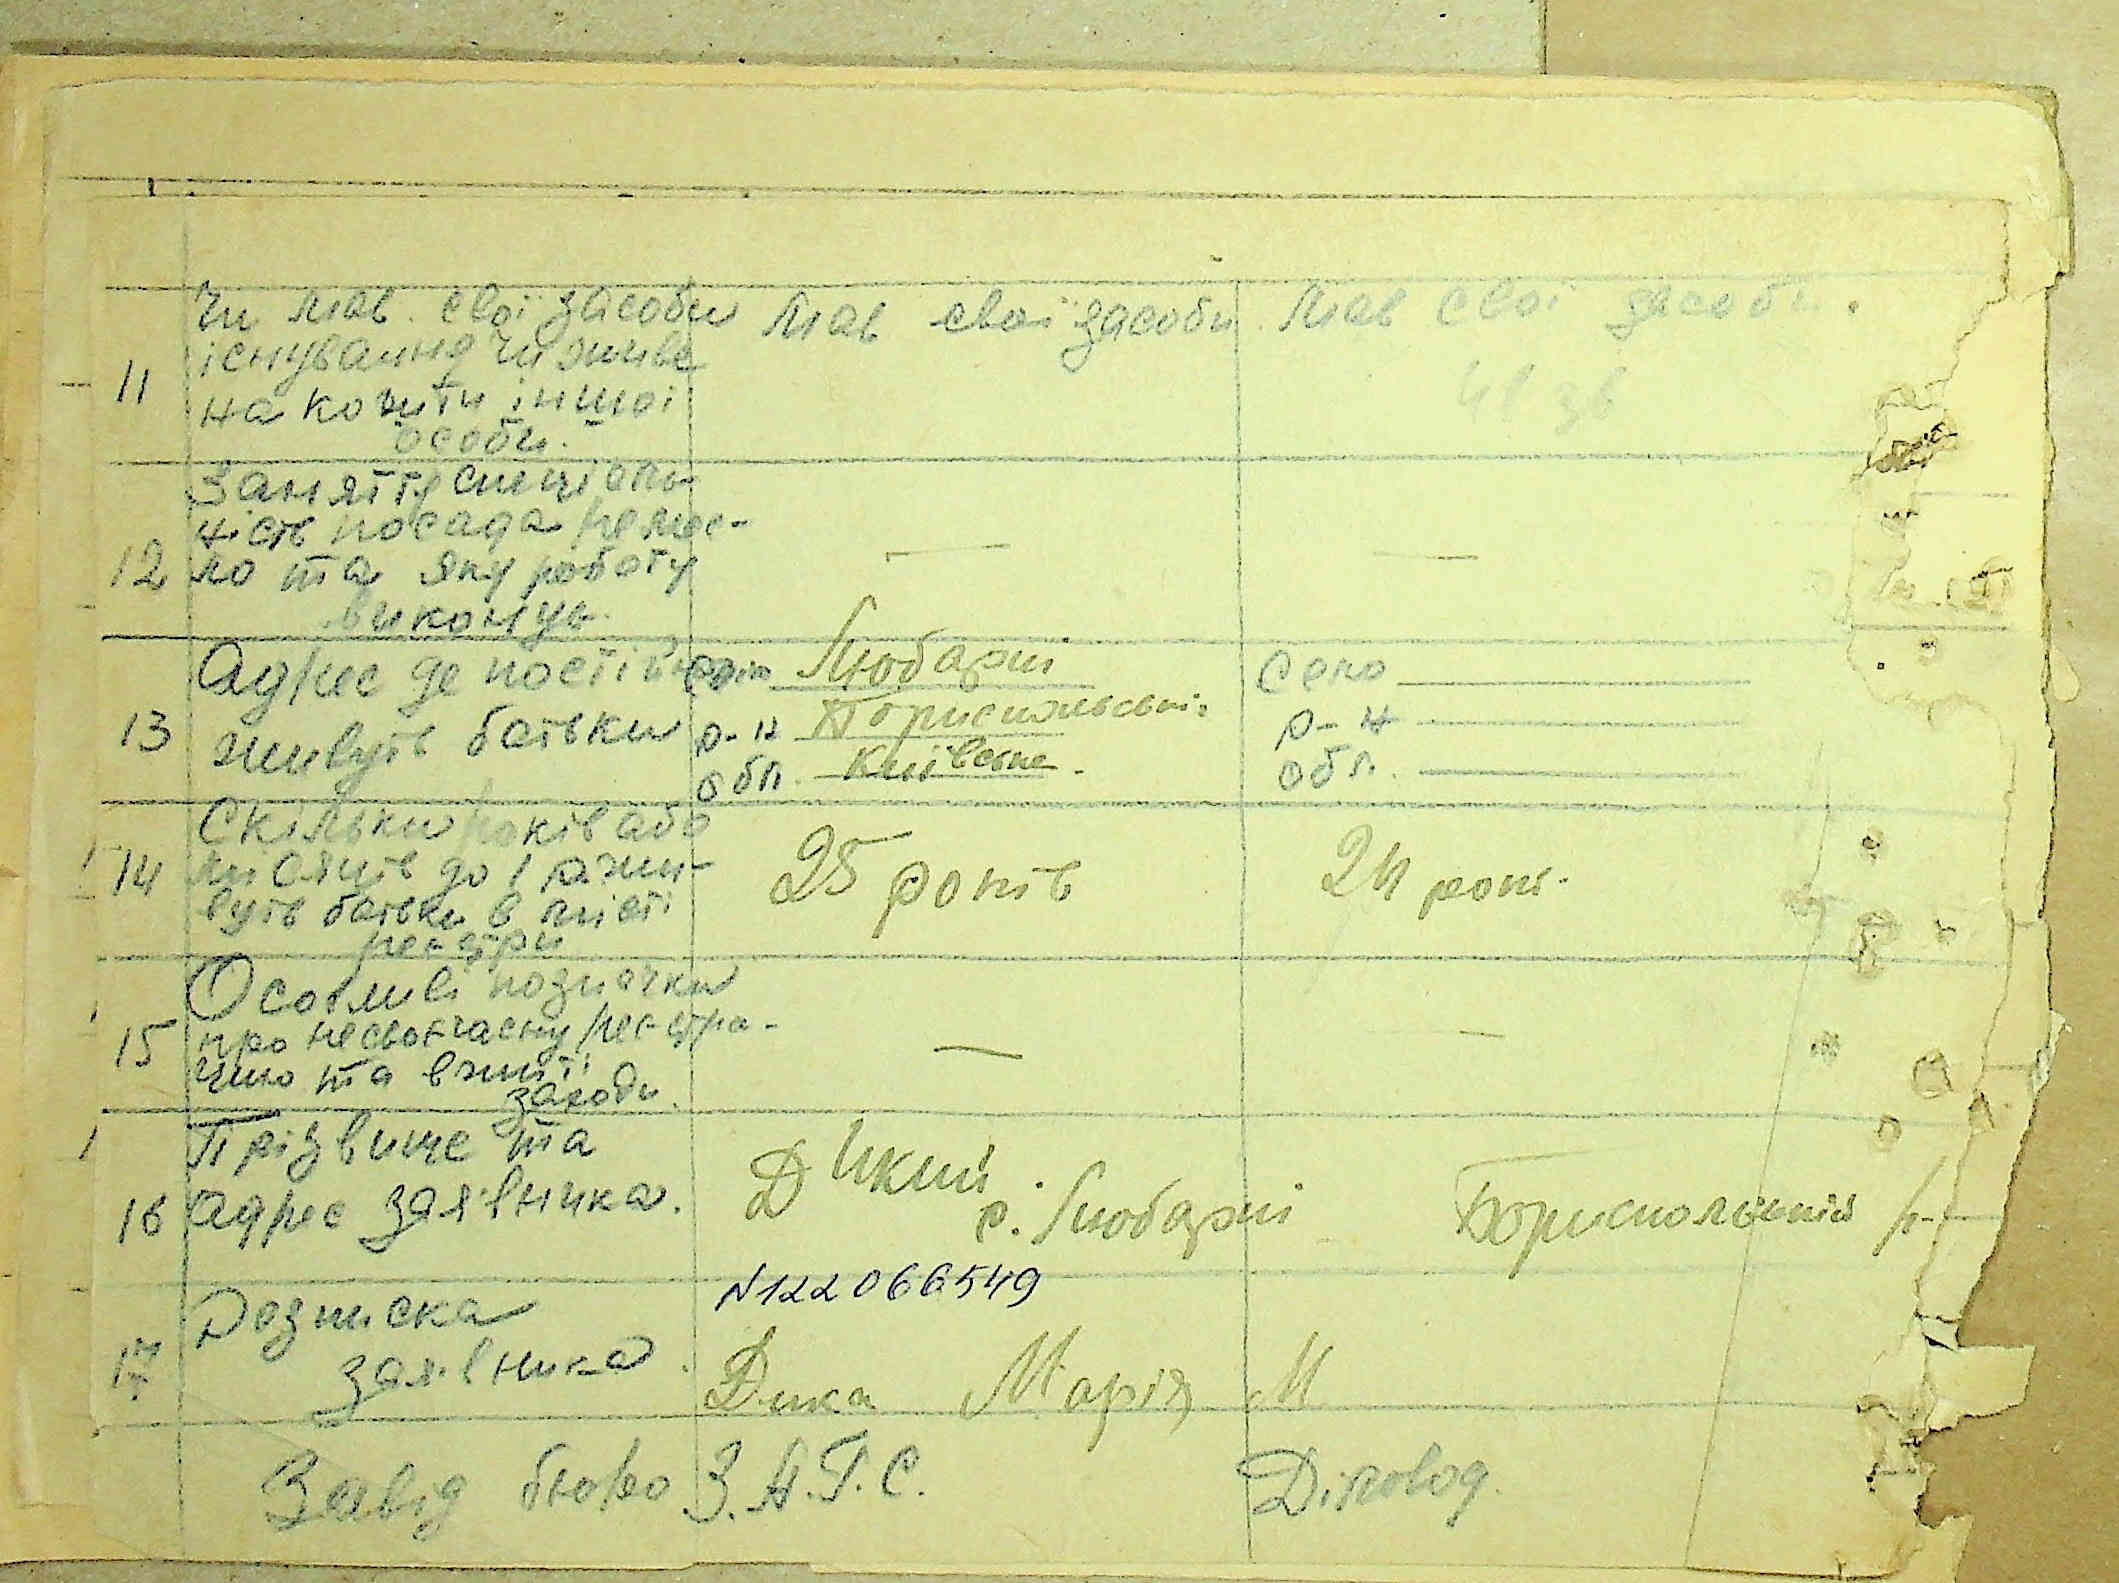 11
Чи мав. свої засоби
існування чи живе
на кошти іншої
особи.
мав свої засоби.
мав свої засоби.
12
Заняття спеціаль-
ність посада ремес-
ло та яку роботу
виконує.
—
—
13
Адрес де постійно
живуть батьки
село Любарці
р-н Бориспольські
обл. Київське.
село
р-н
обл.
14
Скільки років або
місяців до 1 р. жи-
вуть батьки в місті
реєстри
25 років
24 рок.
15
Особливі позначки
про несвоєчасну реєстра-
цию та вжиті
заходи.
—
—
16
Прізвище та
адрес заявника.
Дикий
с. Любарці Бориспольський р-
17
Розписка
заявника.
N122066549
Дика Марія М
Завід бюро З.А.Г.С.
Діловод.